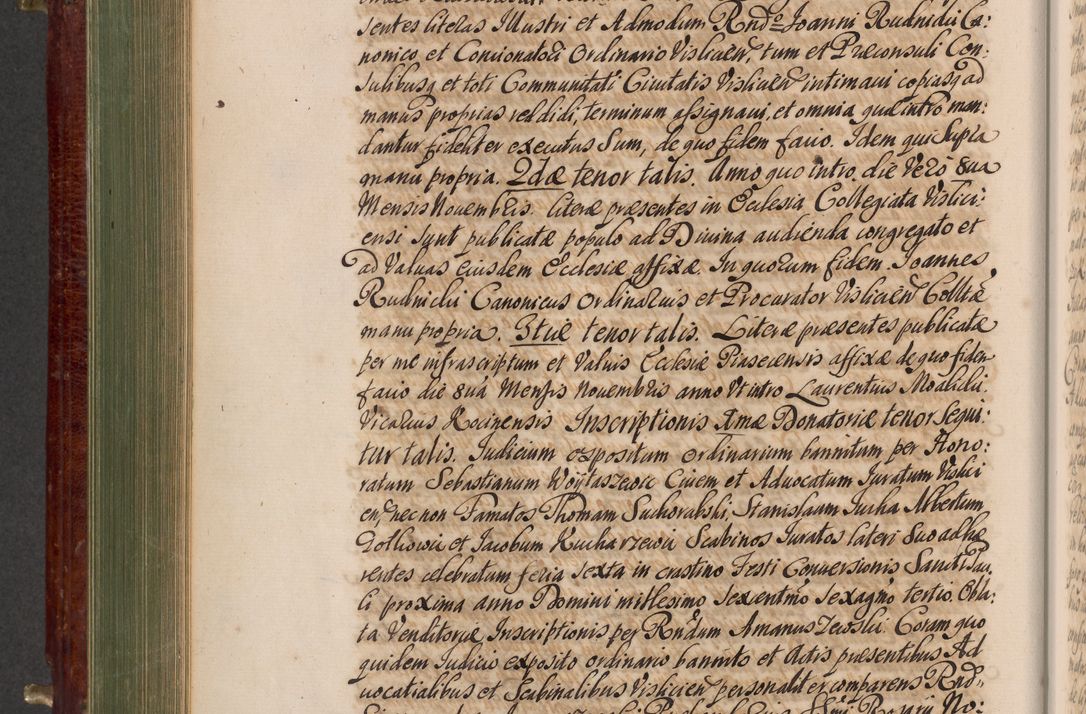 sentes literas Illustri et Admodum Rndo Joanni Rudnicki Ca:
nonico et Concionatori Ordinario Visliciem, tum et Præconsuli Con:
sulibusq et toti Communitati Civitatis Visliciem intimavi copiasq ad
manus proprias reddidi, terminum assignavi, et omnia quæ intro man:
dantur fideliter executus Sum, de quo fidem facio. Idem qui Supra
manu propria. 2dæ tenor talis. Anno quo intro die Vero 8va
Mensis Novembris. literæ præsentes in Ecclesia Collegiata Vislici:
ensi sunt publicatæ populo ad Divina audienda congregato et
ad Valvas eiusdem Ecclesiæ affixæ. In quorum fidem. Joannes
Rudnicki Canonicus Ordinarius et Procurator Visliciem Colltæ
manu propria. 3tiæ tenor talis. Literæ præsentes publicatæ
per me infrascriptum et Valvis Ecclesiæ Piasecensis affixæ de quo fidem
facio die 8va Mensis Novembris anno Ut intro Laurentius
Vicarius Kocinensis Inscriptionis 1mæ Donatoriæ tenor Sequi:
tur talis. Judicium expositum ordinarium bannitum per Hono:
ratum Sebastianum Woytaszewic Civem et Advocatum Juratum Vislici
en, nec non Famatos Thomam Suchorabski, Stanislaum Jucha Albertum
Golkowic et Jacobum Kucharzewic Scabinos Juratos lateri Suo adhæ
rentes celebratum feria sexta in crastino Festi Conversionis Sancti Pau
li proxima anno Domini millesimo sexcentmo sexagmo tertio. Obla:
ta Venditoriæ Inscriptionis per Rndum Amanuszewski. Coram quo
quidem Judicio exposito ordinario bannito et Actis præsentibus Ad
vocatialibus et Scabinalibus Visliciem personaliter comparens Rnd=